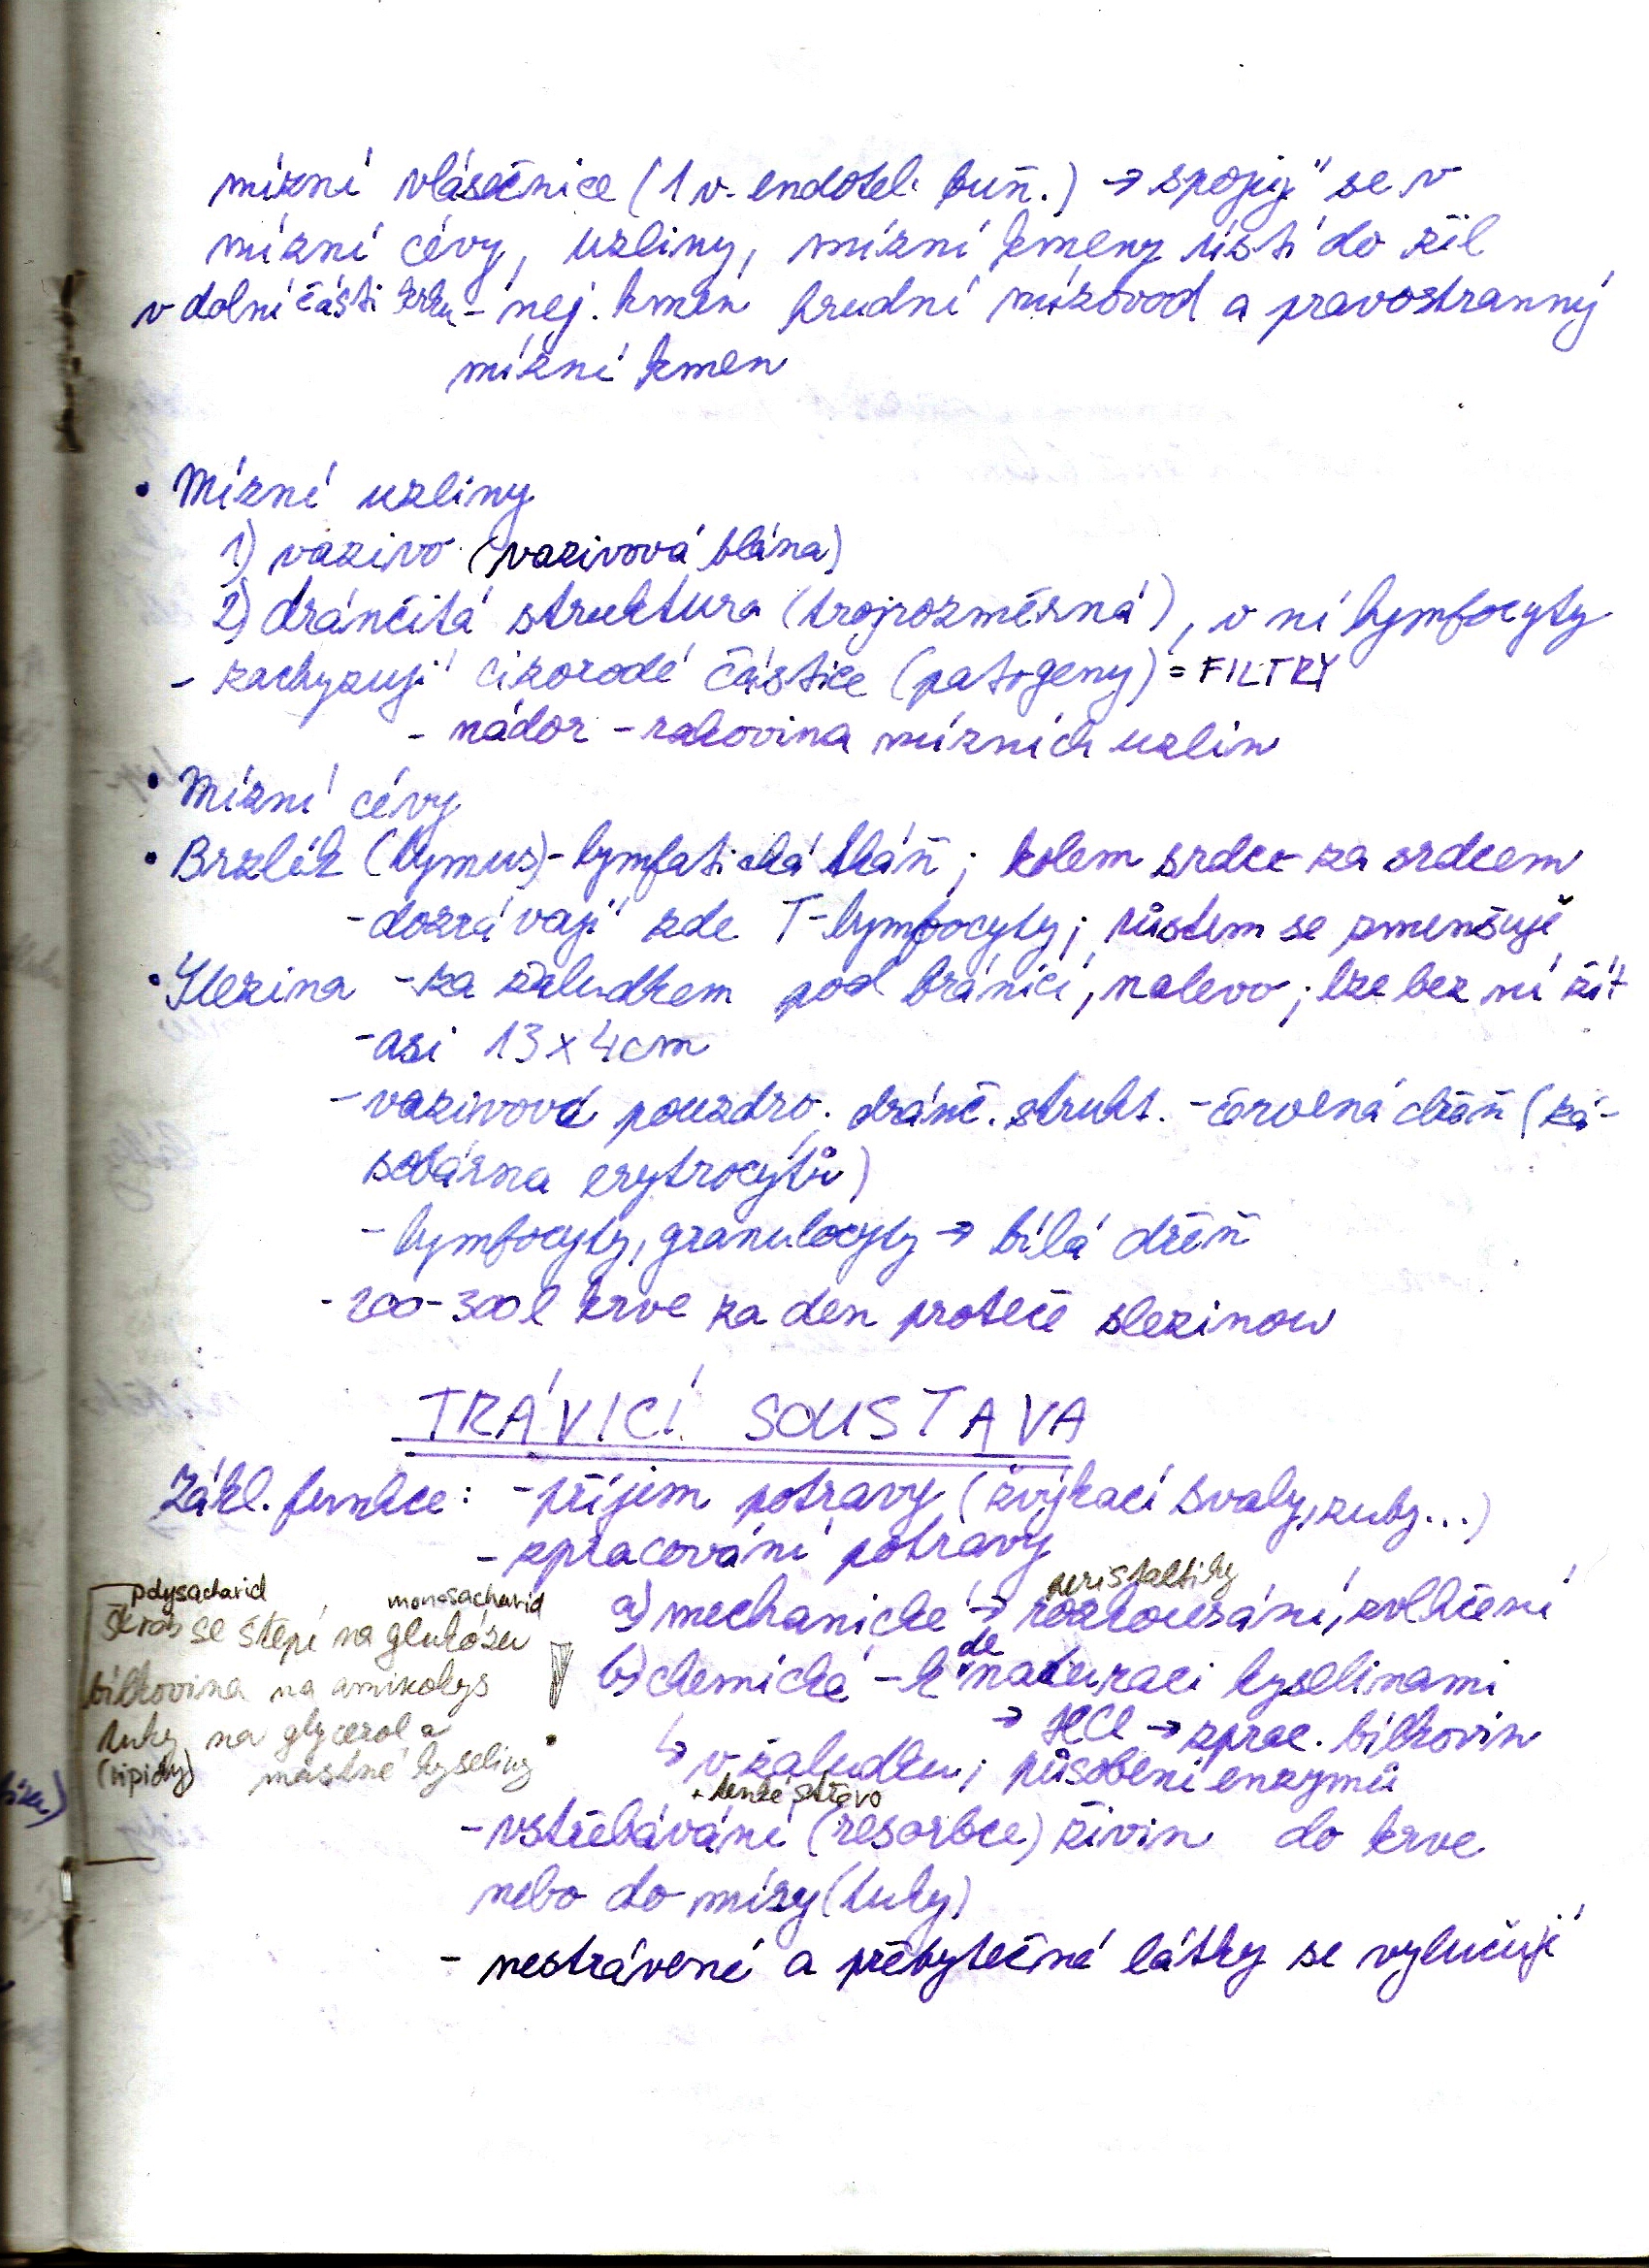 mízní vlásečnice (1 v. endotel. buň.) → spojují se v
mízní cévy, uzliny, mízní kmeny ústí do žil
v dolní části krku - nej. kmen hrudní mízovod a pravostranný
mízní kmen
• Mízní uzliny
1) vazivo (vazivová blána)
2) dráněitá struktura (trojrozměrná), v ní lymfocyty
- zachyzují cizorodé částice (patogeny) = FILTRY
- nádor - rakovina mízních uzlin
• Mízní cévy
• Brzlík (tymus) - lymfatická tkáň; kolem srdce za srdcem
- dozrávají zde T-lymfocyty; růstem se zmenšuje
• Slezina - za žaludkem pod bránicí, nalevo; lze bez ní žít
- asi 13 x 4 cm
- vazivové pouzdro. dráně. strukt. - červená dřeň (zá-
sobárna erytrocytů)
- lymfocyty, granulocyty → bílá dřeň
- 200-300 l krve za den proteče slezinou
TRÁVICÍ SOUSTAVA
Zákl. funkce: - příjem potravy (žvýkací svaly, zuby...)
- zpracování potravy
peristaltiky
a) mechanické → rozkousání, zvlhčení
de
b) chemické - k naturaci kyselinami
→ HCl → zprac. bílkovin
↳ v žaludku; působení enzymů
+ tenké střevo
- vstřebávání (resorbce) živin do krve
nebo do mízy (tuky)
- nestrávené a přebytečné látky se vylučují
polysacharid monosacharid
škrob se štěpí na glukózu
bílkovina na aminokys
tuky na glycerol a
(lipidy) mastné kyseliny